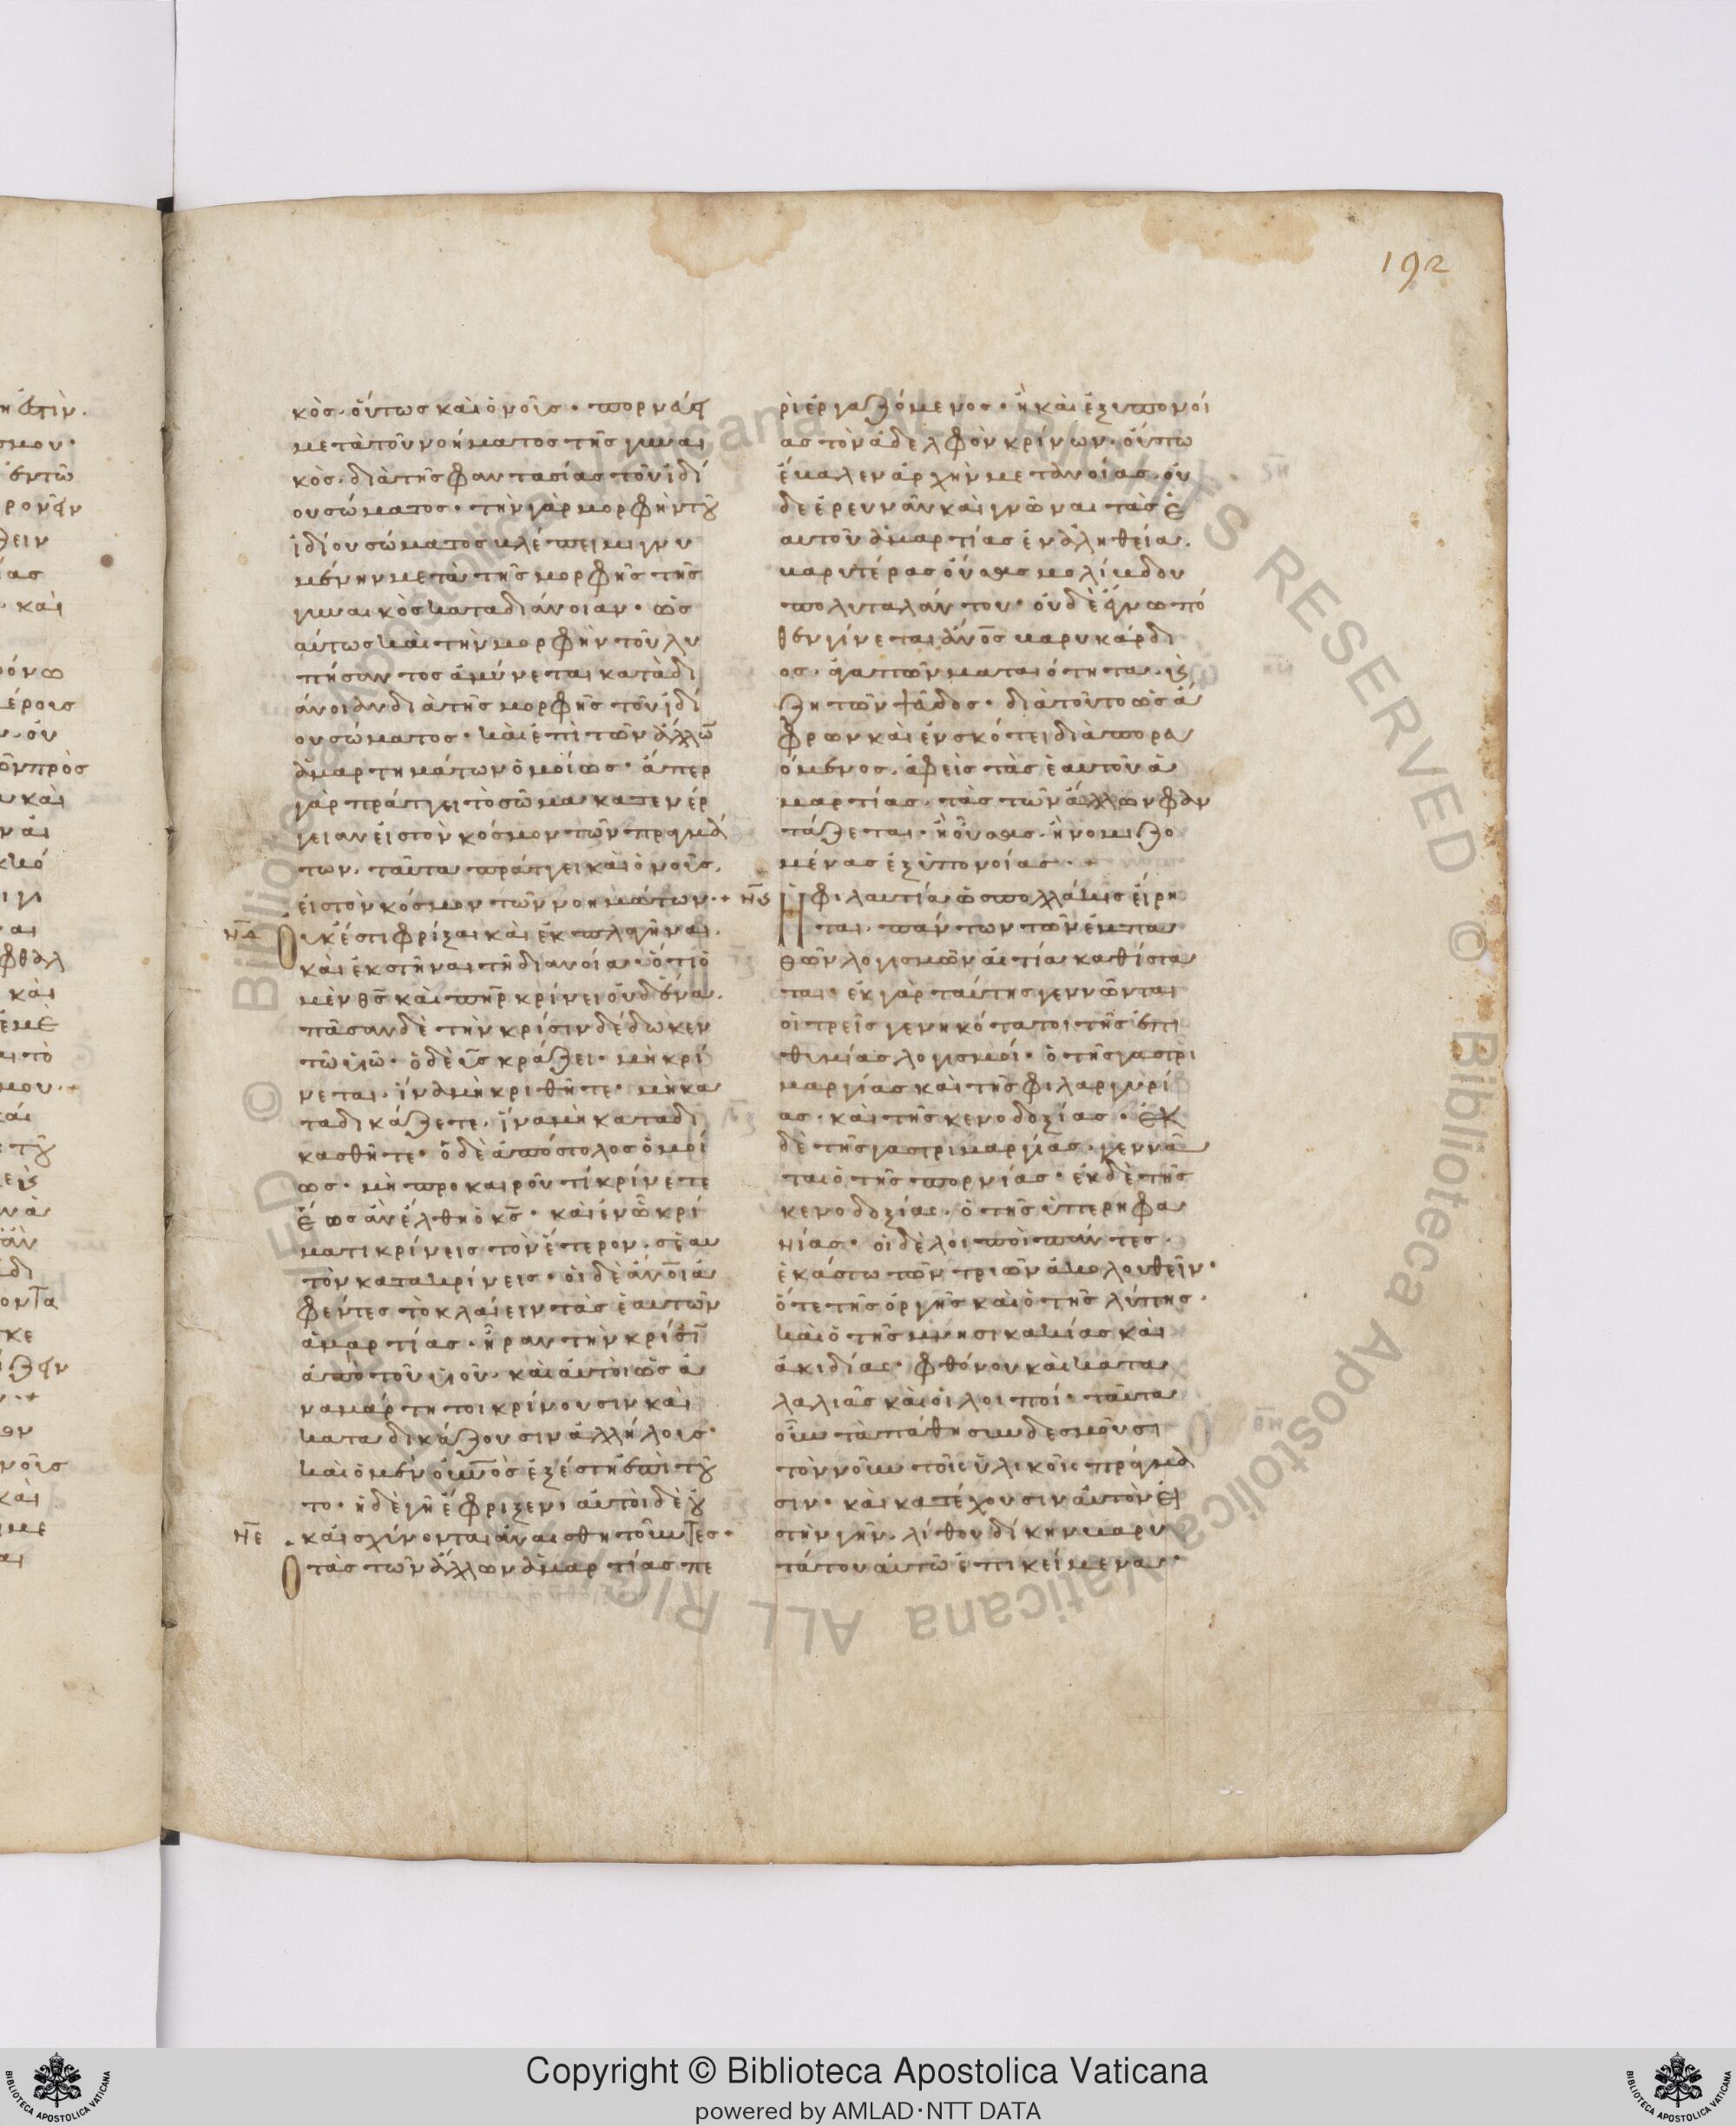 192
κὸσ· οὕτωσ καὶ ὁ νοῦσ· πορνεύει
μετὰ τοῦ νοήματοσ τῆσ γυναι
κὸσ· διὰ τῆσ φαντασίασ τοῦ ἰδί
ου σώματοσ· τὴν γὰρ μορφὴν τοῦ
ἰδίου σώματοσ βλέπει μιγνυ
μένην μετὰ τῆσ μορφῆσ τῆσ
γυναικὸσ κατα διάνοιαν· ὡσ
αύτωσ καὶ τὴν μορφὴν τοῦ λυ
πήσαντοσ ἀμύνεται κατὰ δι
άνοιαν διὰ τῆσ μορφῆσ τοῦ ἰδί
ου σώματοσ· καὶ ἐπὶ τῶν ἄλλω̅
ἁμαρτημάτων ὁμοίωσ· ἅπερ
γὰρ πράττει τὸ σῶμα κατ ενέρ
γειαν εἰσ τὸν κόσμον τῶν πραγμά
των. ταῦτα πράττει καὶ ὁ νοῦσ.
εἰσ τὸν κόσμον τῶν νοημάτων·+
ΝΔ Οὐκ ἔστι φρίξαι καὶ ἐκπλαγῆναι.
καὶ ἐκστῆναι τῇ διανοίᾳ· ὅτι ὁ
μὲν θσ̅ καὶ πηρ̅ κρίνει οὐδένα.
πᾶσαν δὲ τὴν κρίσιν δέδωκεν
τῷ υἱῷ· ὁ δὲ υσ̅ κράζει· μὴ κρί
νεται. ἵνα μὴ κριθῆτε· μὴ κα
ταδικάζετε. ἵνα μὴ καταδι
κασθῆτε· ὁ δὲ ἀπόστολοσ ὁμοί
ωσ· μὴ προ καιροῦ τί κρίνετε
ἕωσ ἂν ἔλθη ὁ κσ̅· καὶ ἐν ᾧ κρί
ματι κρίνεισ τὸν ἕτερον. σεαυ
τὸν κατακρίνεισ· οἱ δὲ ἀνο̅ι ἀ
φέντεσ τὸ κλαίειν τὰσ ἑαυτῶν
ἁμαρτίασ· ἦραν τὴν κρίσι̅
ἀπὸ τοῦ υἱοῦ· καὶ αὐτοὶ ὡσ ἀ
ναμάρτητοι κρίνουσιν καὶ
καταδικάζουσιν ἀλλήλουσ·
καὶ ὁ μὲν οὐνο̅σ ἐξέστη ἐπὶ τού
τω· ἡ δὲ γῆ ἔφριξεν· αὐτοὶ δὲ οὐ
κ αἰσχύνονται ἀναισθητοῦντεσ·
ΝΕ Ὁ τὰσ τῶν ἄλλων ἁμαρτίασ πε
ριεργαζόμενοσ· ἢ καὶ ἐξ υπονοί
ασ τὸν ἀδελφὸν κρίνων· οὔπω
ἔβαλεν ἀρχὴν μετανοίασ. οὐ
δε ἐρευνᾶν καὶ γνῶναι τὰσ ἑ
αυτοῦ ἁμαρτίασ ἐν ἀληθεία.
βαρυτέρασ οὔσασ μολίβδου
πολυταλάντου· οὐδὲ ἔγνω πό
θεν γίνεται ἀνο̅σ βαρυκάρδι
οσ. ἀγαπῶν ματαιότητα. καὶ
ζητῶν ψεῦδοσ· διὰ τοῦτο ὡσ ἄ
φρων καὶ ἐν σκότει διαπορευ
όμενοσ. ἀφεὶσ τὰσ ἑαυτοῦ ἁ
μαρτίασ. τὰσ τῶν ἄλλων φαν
τάζεται· ἢ οὔσασ. ἢ νομιζο
μένασ ἐξ ὑπονοίασ·+
Νϛ Ἡ φιλαυτία ὡσ πολλάκισ εἴρη
ται. πάντων τῶν ἐμπα
θῶν λογισμῶν αἰτία καθίστα
ται· ἐκ γὰρ ταύτησ γεννῶνται
οἱ τρεῖσ γενηκώτατοι τῆσ ἐπι
θυμίασ λογισμοί· ὁ τῆσ γαστρι
μαργίασ καὶ τῆσ φιλαργυρί
ασ· καὶ τῆσ κενοδοξίασ· ἐκ
δὲ τῆσ γαστριμαργίασ. γεννᾶ
ται ὁ τῆσ πορνίασ· ἐκ δὲ τῆσ
κενοδοξίασ. ὁ τῆσ ὑπερηφα
νίασ· οἱ δὲ λοιποὶ πάντεσ.
ἑκάστω τῶν τριῶν ἀκολουθεῖν·
ὅ τε τῆσ ὀργῆσ καὶ ὁ τῆσ λύπησ.
καὶ ὁ τῆσ μνησικακίασ καὶ
ἀκιδίασ· φθόνου καὶ κατα
λαλιᾶσ καὶ οἱ λοιποί· ταῦτα
οὖν τὰ πάθη συνδεσμοῦσι
τὸν νοῦν τοῖσ ὑλικοῖσ πράγμα
σιν· καὶ κατέχουσιν αὐτὸν εἰ
σ τὴν γῆν. λίθου δίκην βαρυ
τάτου αὐτῶ ἐπικείμενα·
Copyright © Biblioteca Apostolica Vaticana
powered by AMLAD·NTT DATA